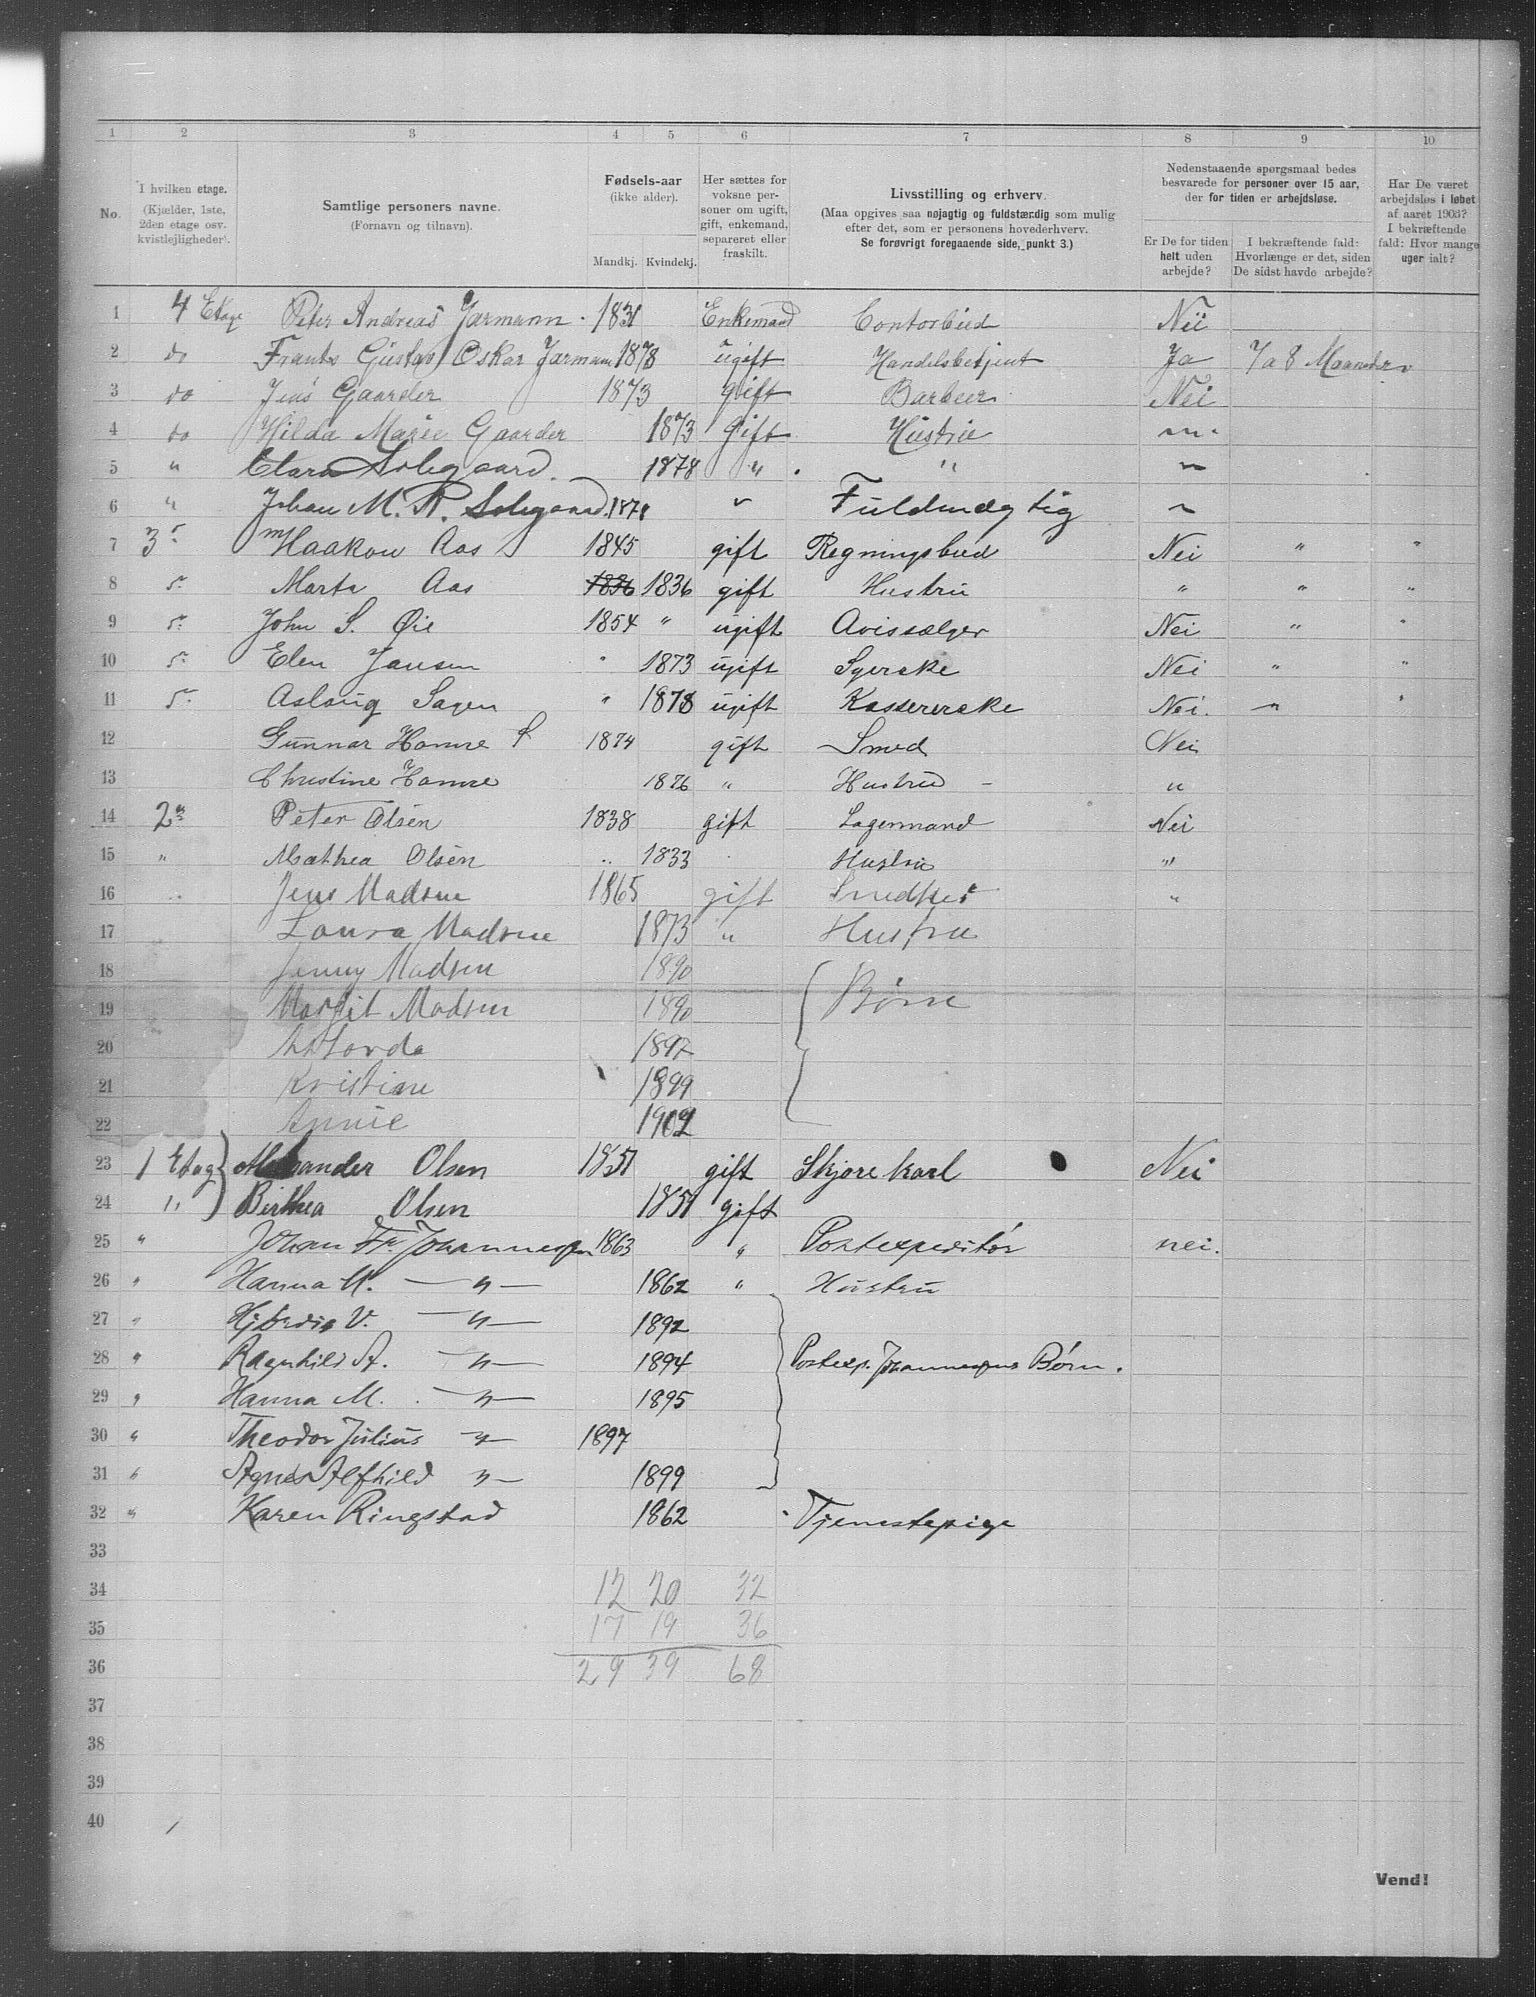 1 2 3 4 5 6 7 8 9 10
No.
I hvilken etage.
(Kjælder, 1ste,
2den etage osv.
kvistlejligheder).
Samtlige personers navne.
(Fornavn og tilnavn).
Fødsels-aar
(ikke alder).
Mandkj. Kvindekj.
Her sættes for
voksne per-
soner om ugift,
gift, enkemand,
separeret eller
fraskilt.
Livsstilling og erhverv.
(Maa opgives saa nøjagtig og fuldstændig som mulig
efter det, som er personens hovederhverv.
Se forøvrigt foregaaende side, punkt 3.)
Nedenstaaende spørgsmaal bedes
besvarede for personer over 15 aar,
der for tiden er arbejdsløse.
Er De for tiden
helt uden
arbejde?
I bekræftende fald:
Hvorlænge er det, siden
De sidst havde arbejde?
Har De været
arbejdsløs i løbet
af aaret 1903?
I bekræftende
fald: Hvor mange
uger ialt?
1 4 Etage Peter Andreas Jarmann 1831 Enkemand Contorbud Nei
2 do Frants Gustav Oskar Jarmann 1878 ugift Handelsbetjent Ja 7 a 8 Maaneder
3 do Jens Gaarder 1873 gift Barber Nei
4 do Hilda Marie Gaarder 1873 Gift Hustru
5 " Clara Solegaard. 1878 " "
6 " Johan M. R. Solegaard. 187 " Fuldmægtig
7 3 Haakon Aas 1845 gift Regningsbud Nei " "
8 Marta Aas 1836 1836 gift Hustru " " "
9 John S. Øie 1854 " ugift Avissælger Nei " "
10 Elen Jansen " 1873 ugift Syerske Nei " "
11 Aslaug Sagen " 1878 ugift Kassererske Nei. " "
12 Gunnar Hamre S 1874 gift Smed Nei
13 Christine Hamre 1876 " Hustru - "
14 2 Peter Olsen 1838 gift Lagermand Nei
15 " Mathea Olsen " 1833 Hustru "
16 " Jens Madsen 1865 gift Snedker "
17 Laura Madsen 1873 " Hustru
18 Jenny Madsen 1890
19 Margit Madsen 1890 Børn
20 1897
21 Kristine 1899
22 Annie 1902
23 1 Etag Aleksander Olsen 1851 gift Skjørekarl Nei
24 " Birthea Olsen 1851 gift
25 " Johan Fr. Johannessen 1863 " Postexpeditør nei.
26 " Hanna M. — " — 1862 " Hustru
27 " Hjørdis V. — " — 1892
28 " Ragnhild A. — " — 1894 Postexp. Johannessens Børn.
29 " Hanna M. — " — 1895
30 " Theodor Julius — " — 1897
31 " Agnes Alfhild — " — 1899
32 " Karen Ringstad 1862 Tjenestepige
33
34 12 20 32
35 17 19 36
36 29 39 68
37
38
39
40
Vend!